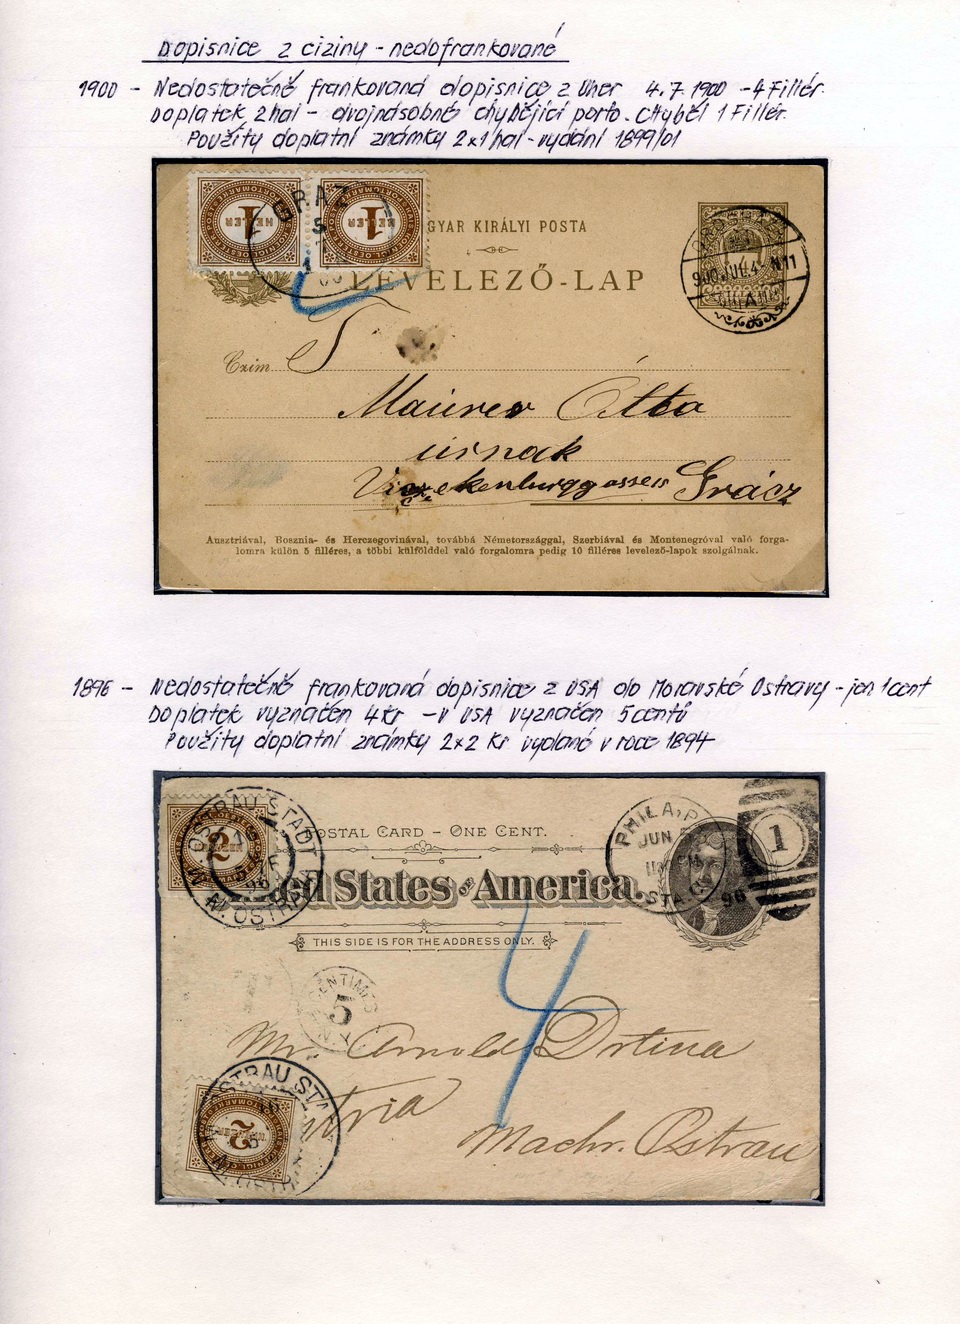 Dopisnice z ciziny - nedofrankované
1900 - Nedostatečně frankovaná dopisnice z Uher 4.7.1900 - 4 Fillér.
Doplatek 2hal - dvojnásobné chybějící porto. Chyběl 1 Fillér.
Použity doplatní známky 2x1 hal - vydání 1899/01
1 HELLER 1 HELLER
GRAZ
GYAR KIRÁLYI POSTA
LEVELEZŐ-LAP
OROSHÁZA
900 JUL. 4 N11
T
Czim
Maurer Otto
úrnak
Grácz
Ausztriával, Bosznia- és Herczegovinával, továbbá Németországgal, Szerbiával és Montenegróval való forga-
lomra külön 5 filléres, a többi külfölddel való forgalomra pedig 10 filléres levelező-lapok szolgálnak.
1896 - Nedostatečně frankovaná dopisnice z USA do Moravské Ostravy - jen 1cent
Doplatek vyznačen 4kr - v USA vyznačen 5centů
Použity doplatní známky 2x2 Kr vydané v roce 1894
2
OSTRAU STADT
M. OSTRAVA
POSTAL CARD - ONE CENT.
PHILA, P
JUN
STA. C
96
1
ed States of America.
THIS SIDE IS FOR THE ADDRESS ONLY.
4
CENTIMES
5
N.Y.
Mr. Arnold Drtina
Austria
Machr. Ostrau
OSTRAU STADT
2
M. OSTR